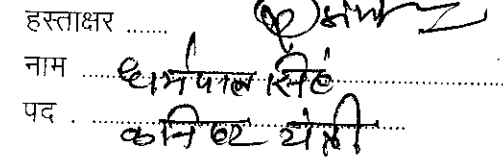 हस्ताक्षर ......
नाम ..... धर्मपाल सिंह
पद . ... कनिष्ठ यंत्री